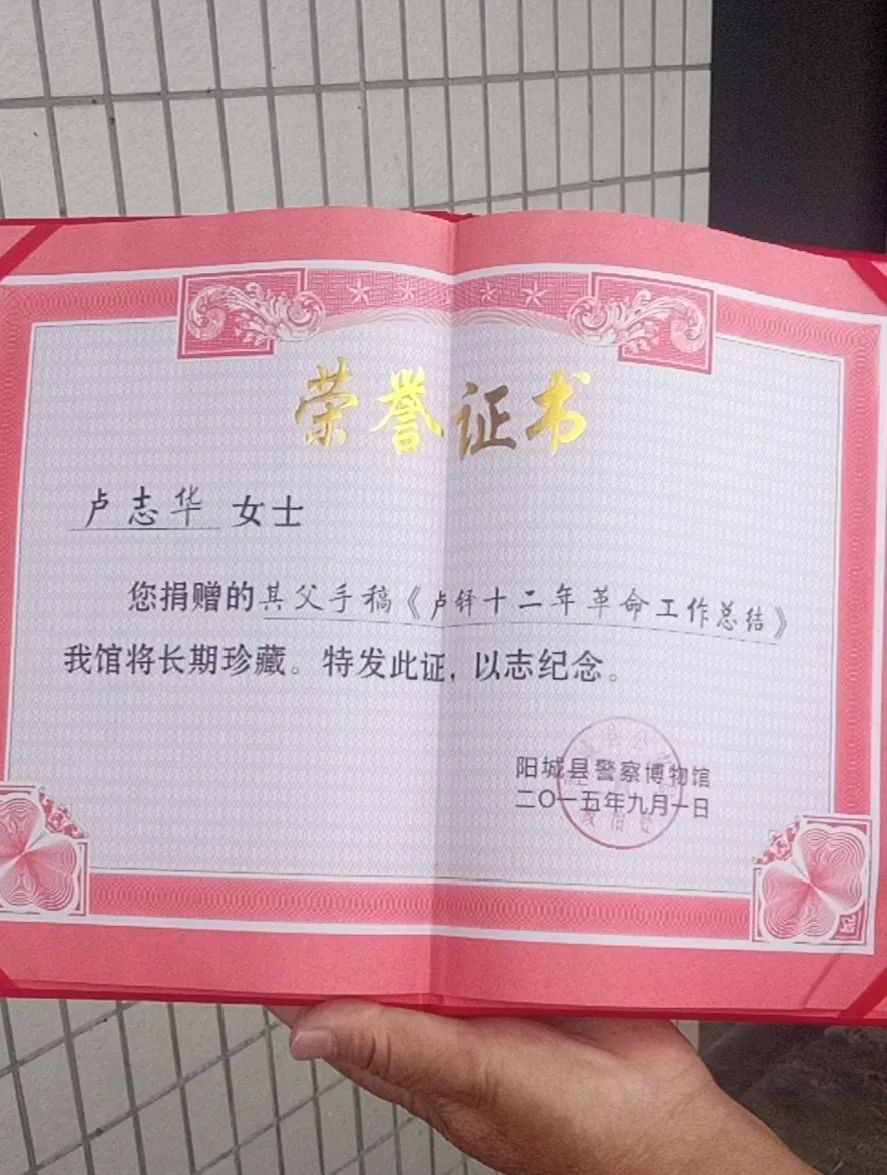 荣誉证书
卢志华 女士
您捐赠的其父手稿《卢铎十二年革命工作总结》
我馆将长期珍藏。特发此证，以志纪念。
阳城县警察博物馆
二〇一五年九月一日